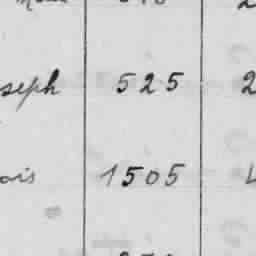 seph 525 2
ois 1505